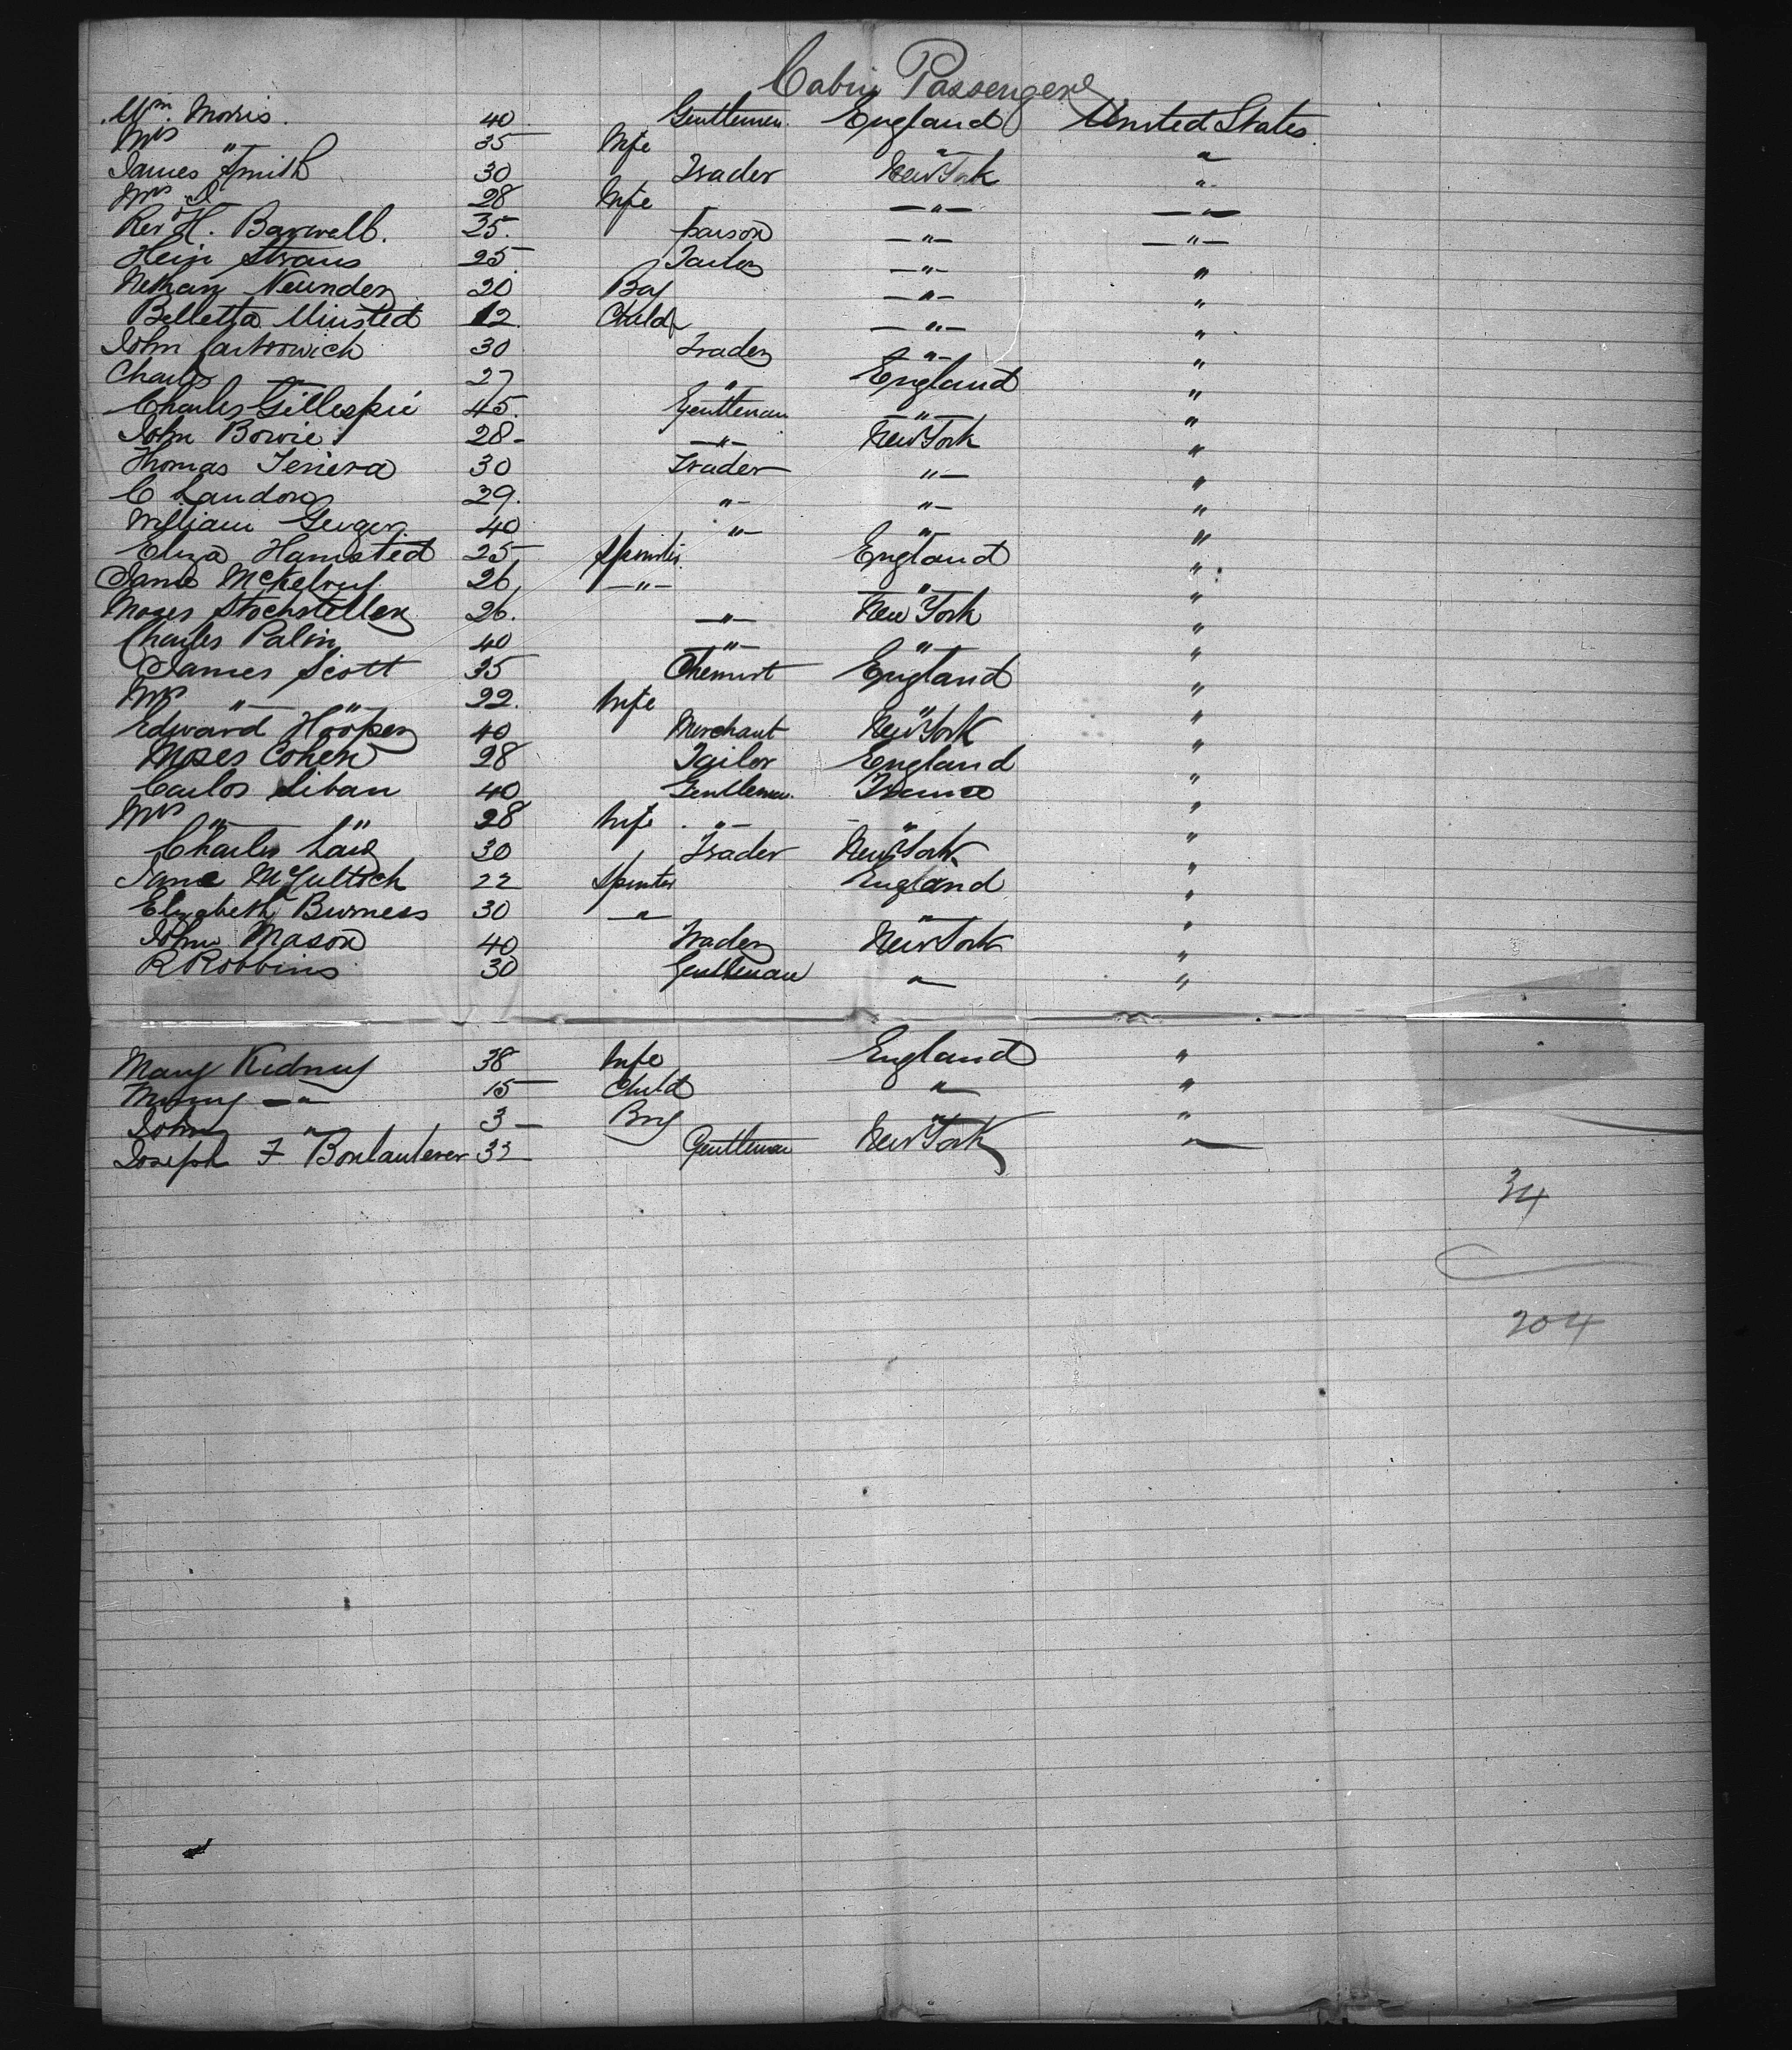 Cabin Passengers
Wm. Morris. 40 Gentleman. England United States
Mrs " 35 Wife " "
James Smith 30 Trader New York "
Mrs S 28 Wife " "
Rev H. Barwell. 35. parson " "
Hein Straus 25. Tailor " "
Nathan 20 Boy " "
Belletta Minsted 12. Child " "
John 30 Trader " "
Charles — 27 " England "
Charles Gillespie 45. Gentleman " "
John Bowie 28 - " New York "
Thomas 30 Trader " "
C Landors 29. " " "
William Geiger 40 " " "
Eliza Hamsted 25 Spinster England "
Jane McKelvey 26 " " "
Moses 26. " New York "
Charles Palin 40 " " "
James Scott 35 Chemist England "
Mrs " " 22. Wife " "
Edward Hooper 40 Merchant New York "
Moses Cohen 28 Tailor England "
Carlos Liban 40 Gentleman France "
Mrs " " 28 Wife " " "
Charles 30 Trader New York "
Jane McCullock 22 Spinster England "
Elizabeth Burness 30 " " "
John Mason 40 Trader New York "
R Robbins 30 Gentleman " "
Mary Kidney 38 Wife England "
" 15 Child " "
John " 3 — Boy " "
Joseph F 33 Gentleman New York "
34
204